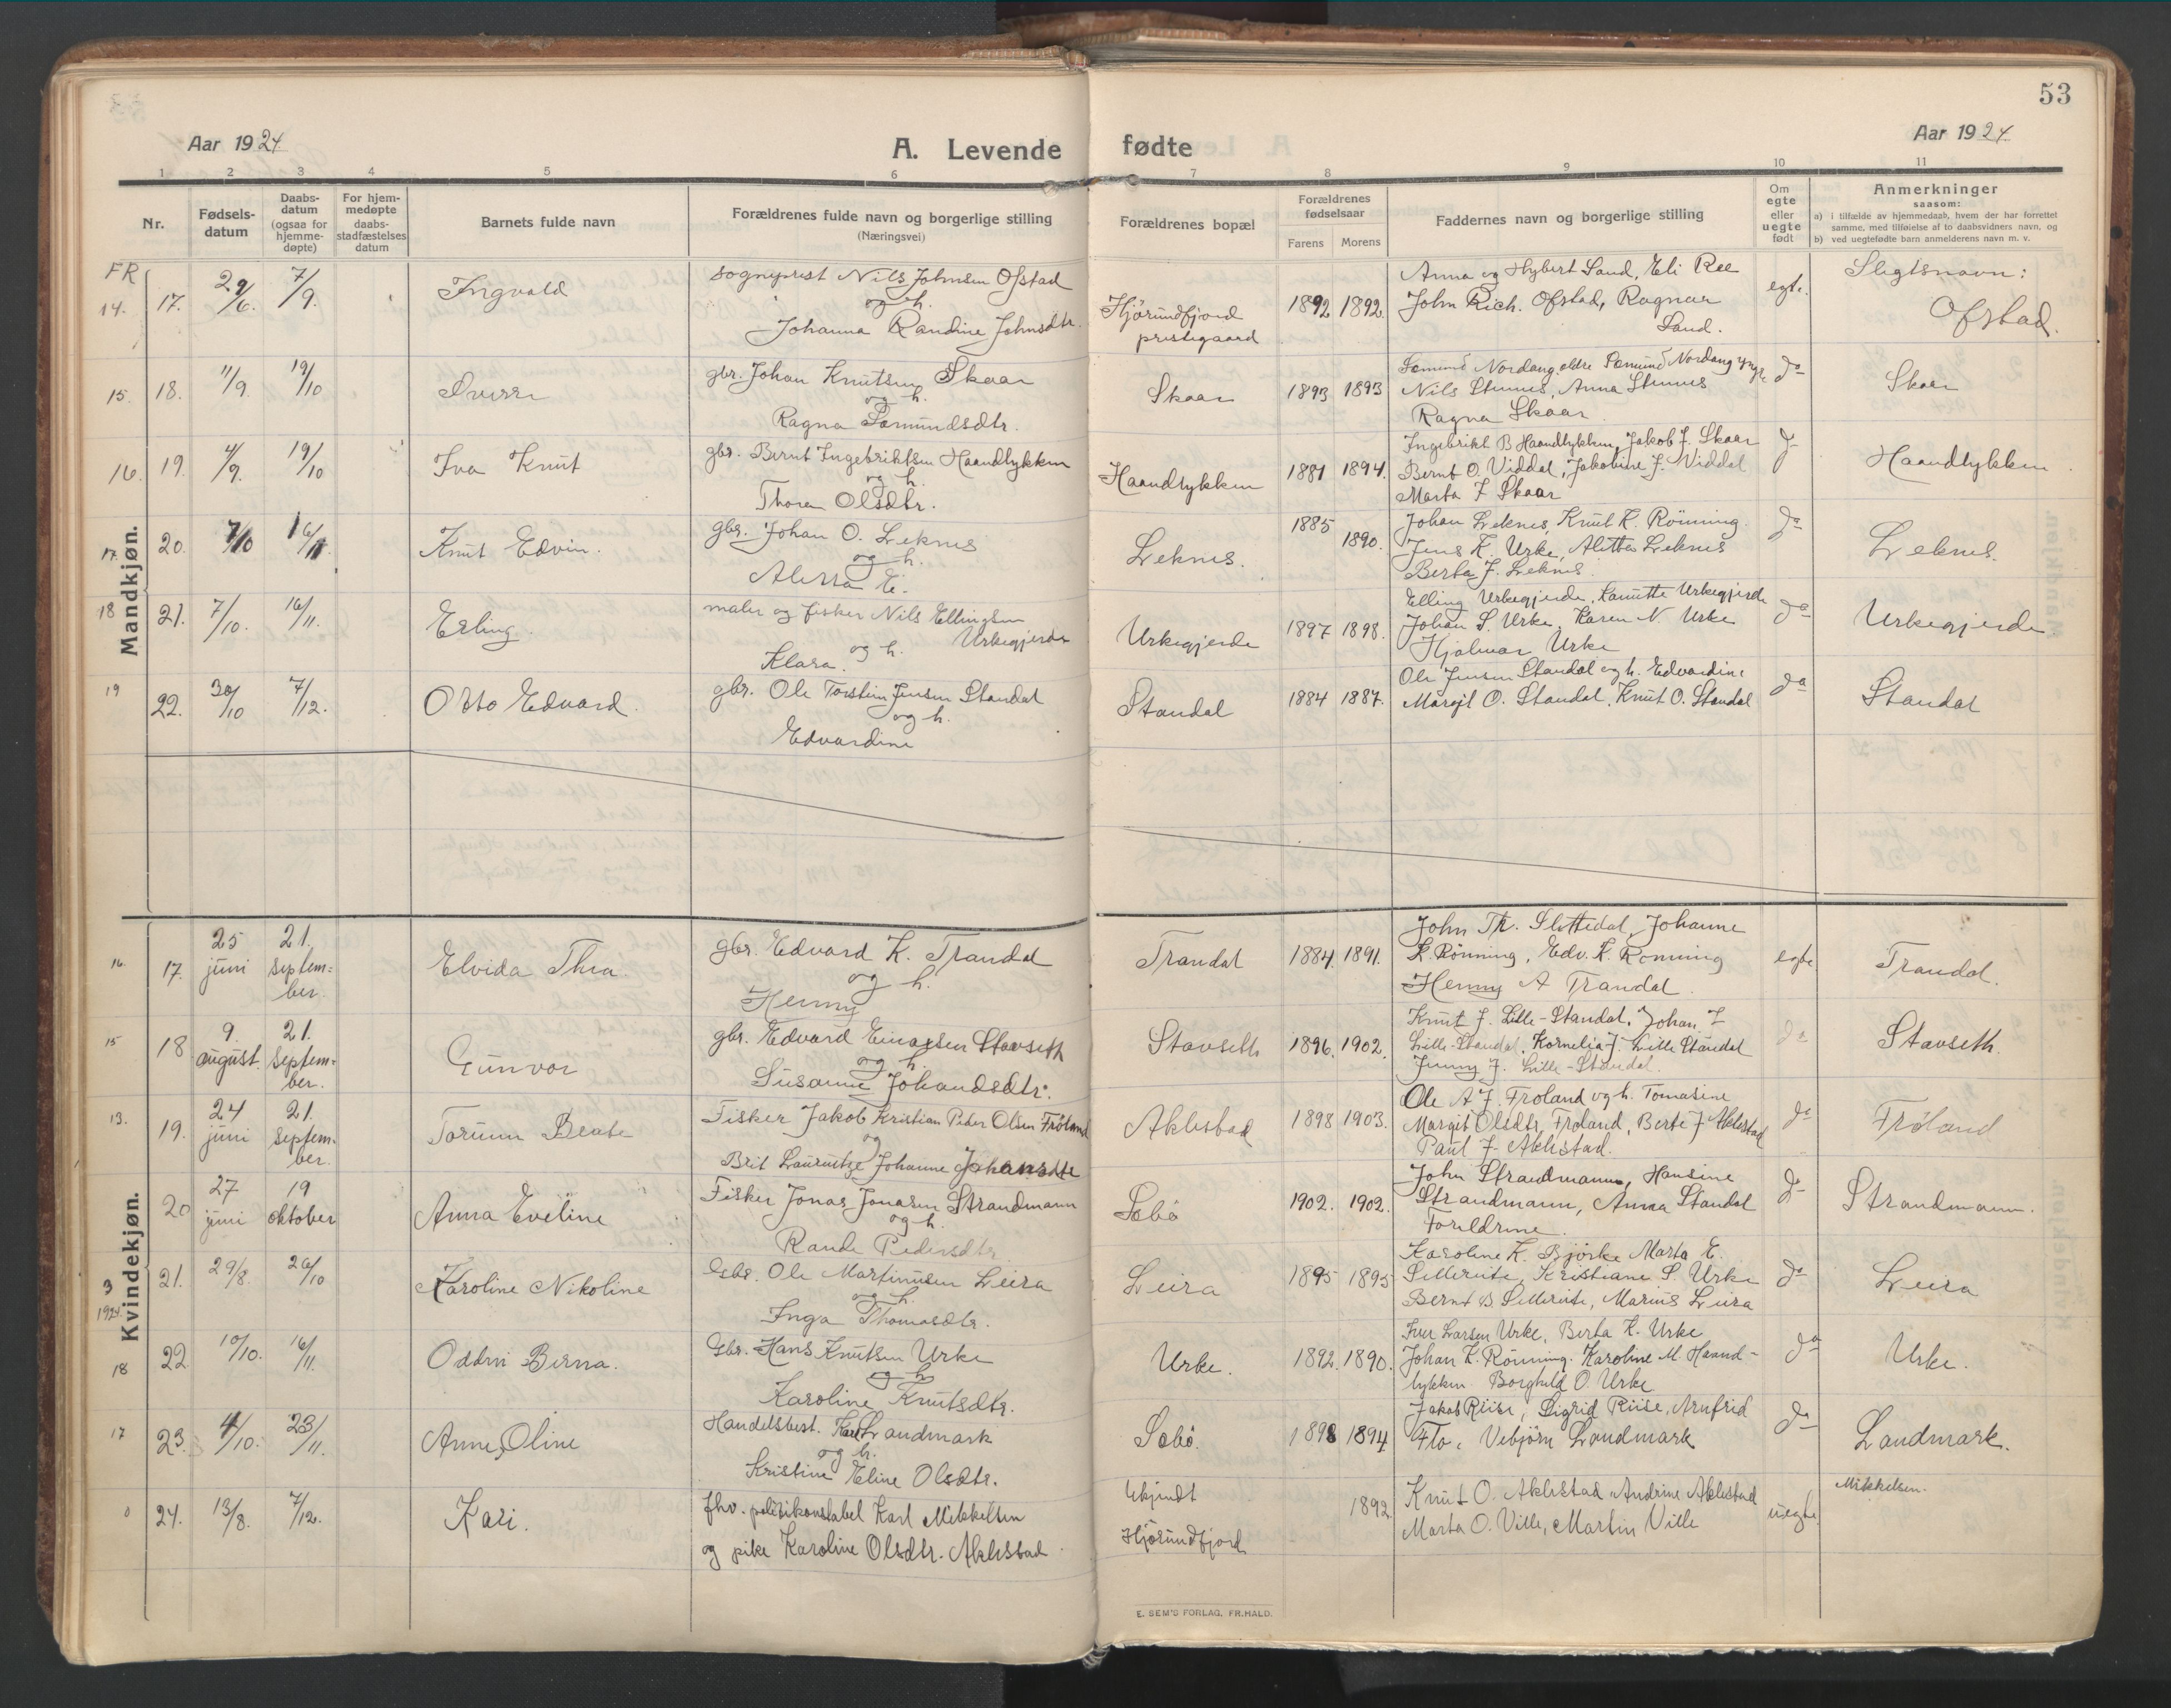 53
Aar 1924
A. Levende fødte
Aar 1924
1 2 3 4 5 6 7 8 9 10 11
Nr.
Fødsels-
datum
Daabs-
datum
(ogsaa for
hjemme-
døpte)
For hjem-
medøpte
daabs-
stadfæstelses
datum
Barnets fulde navn
Forældrenes fulde navn og borgerlige stilling
(Næringsvei)
Forældrenes bopæl
Forældrenes
fødselsaar
Farens Morens
Faddernes navn og borgerlige stilling
Om
egte
eller
uegte
født
Anmerkninger
saasom:
a) i tilfælde av hjemmedaab, hvem der har forrettet
samme, med tilføielse af to daabsvidners navn, og
b) ved uegtefødte barn anmelderens navn m. v.
Mandkjøn.
FR
14. 17. 29/6. 7/9. Ingvald
sogneprest Nils Johnsen Ofstad
og h.
Johanna Randine Johnsdtr.
Hjørundfjord
prestegaard
1892 1892.
Anna og Hybert Sand, Eli Ree
John Rich. Ofstad, Ragnar
Sand.
egte.
Slegtsnavn:
Ofstad.
15. 18. 11/9. 19/10 Sverre
gbr. Johan Knutsen Skaar
og h.
Ragna Sæmundsdtr.
Skaar
1893 1893
Sæmund Nordang eldre Sæmund Nordang yngre
Nils Stennes, Anna Stennes
Ragna Skaar
do
Skaar
16. 19. 4/9. 19/10 Iva Knut
gbr. Bernt Ingebriktsen Haandlykken
og h.
Thora Olsdtr.
Haandlykken
1881 1894.
Ingebrikt B Haandlykken, Jakob J. Skaar
Bernt O. Viddal, Jakobine J. Viddal
Marta J Skaar
do
Haandlykken
17. 20. 7/10 16/11. Knut Edvin.
gbr. Johan O. Leknes
og h.
Aletta E.
Leknes.
1885 1890.
Johan Leknes, Knut K. Rönning.
Jens K. Urke, Alette Leknes
Berta J. Leknes.
do
Leknes.
18 21. 7/10. 16/11. Erling.
maler og fisker Nils Ellingsen
Urkegjerde
og h.
Klara.
Urkegjerde
1897 1898.
Elling Urkegjerde, Lanutte Urkegjerde
Johan S. Urke, Karen N. Urke
Hjalmar Urke
do
Urkegjerde
19 22. 30/10 7/12. Otto Edvard.
gbr. Ole Torstein Jensen Standal
og h.
Edvardine
Standal
1884 1887.
Ole Jensen Standal og h. Edvardine
Margit O. Standal, Knut O. Standal
do
Standal
Kvindekjøn.
16. 17. 25 juni 21. septem=
ber.
Elvida Thea.
gbr. Edvard K. Trandal
og h.
Henny
Trandal
1884. 1891.
John Th. Slettedal, Johanne
K. Rönning, Edv. K. Rönning
Henny A Trandal.
egte.
Trandal.
15 18 9. august. 21. septem=
ber.
Gunvor
gbr. Edvard Einarsen Stavseth
og h.
Susanne Johansdtr.
Stavseth
1896. 1902.
Knut J. Lille-Standal, Johan J
Lille-Standal, Kornelia J. Lille Standal
Jenny J. Lille-Standal.
do
Stavseth.
13. 19. 24 juni 21. septem=
ber.
Torunn Beate
Fisker Jakob Kristian Peder Olsen Fröland
og
Brit Lauritze Johanne Johansdtr
Aklestad
1898 1903.
Ole A J. Fröland og h. Tomasine
Margit Olsdtr. Fröland, Berte J Aklestad
Paul J. Aklestad.
do
Fröland
20 27 juni 19 oktober
Anna Eveline
Fisker Jonas Jonasen Strandmann
og h.
Rande Pedersdtr
Sæbö
1902. 1902.
John Strandmann, Hansine
Strandmann, Anna Standal
Foreldrene.
do
Strandmann.
3
1924. 21. 29/8. 26/10 Karoline Nikoline
Gbr. Ole Martinusen Leira
og h.
Inga Thomasdtr.
Leira
1895 1895
Karoline K. Björke Marta E.
Sellereite, Kristiane S. Urke
Bernt B. Sellereite, Marius Leira
do
Leira
18 22 10/10. 16/11. Oddrun Berna.
Gbr. Hans Knutsen Urke
og h
Karoline Knutsdtr.
Urke.
1892. 1890.
Iver Larsen Urke, Berta K. Urke
Johan K. Rönning. Karoline M. Haand-
lykken. Borghild O. Urke
do
Urke.
17 23. 4/10. 23/11. Anne Oline
Handelsbest. Karl Landmark
og h.
Kristine Eline Olsdtr.
Sæbö.
1898 1894
Jakob Riise, Sigrid Riise, Arnfrid
Flo, Vebjörn Landmark
do
Landmark.
0 24. 13/8. 7/12. Kari.
fhv. politikonstabel Karl Mikkelsen
og pike Karoline Olsdtr. Aklestad
Ukjendt
Hjörundfjord
1892.
Knut O. Aklestad Andrine Aklestad
Marta O. Ville, Martin Ville
uegte.
Mikkelsen.
E. SEM'S FORLAG, FR.HALD.